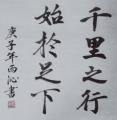 千里之行
始於足下
庚子年雨沁書